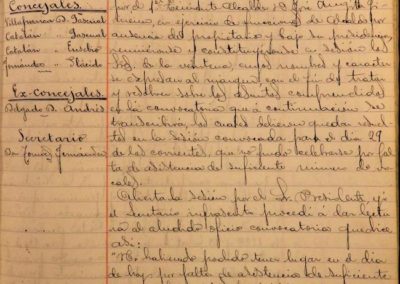 Concejales
Villafranca D. Pascual
Catalán " Pascual
Catalán " Eusebio
Fernández " Elicido
Ex-Concejales
Delgado D. Andrés
Secretario
Don Tomás Fernández
por el 1er Teniente Alcalde D. José
en ejercicio de funciones de Alcalde por
ausencia del propietario y bajo su presidencia,
reunieronse y constituyeronse en sesión los
Sres. de la ventena, cuyos nombres y caracter
se expresan al margen con el fin de tratar
y resolver sobre los asuntos comprendidos
en la convocatoria que á continuación se
transcribirá, los cuales debieron quedar resuel
tos en la sesión convocada para el dia 29
de los corrientes, que no pudo celebrarse por fal
ta de asistencia de suficiente numero de vo
cales.
Abierta la sesión por el Sr. Presidente, yo
el secretario infrascrito procedí á dar lectu
ra al aludido oficio convocatoria que dice
así:
"No habiendo podido tener lugar en el dia
de hoy por falta de asistencia de suficiente